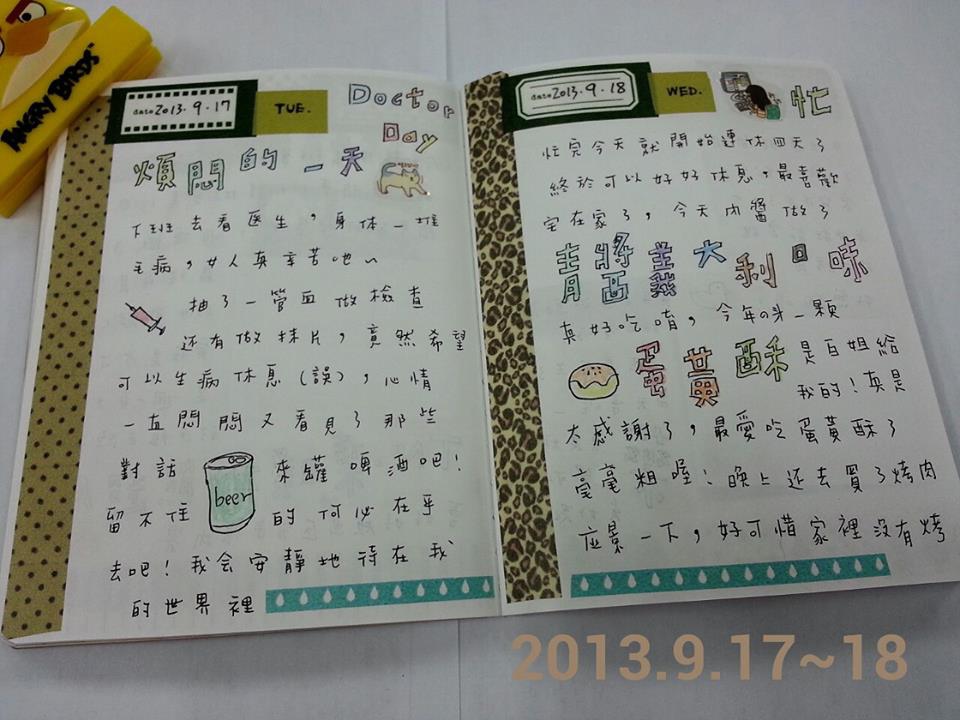 ANGRY BIRDS™
date 2013.9.17 TUE. Doctor Day
煩悶的一天
下班去看医生，身体一堆
毛病，女人真辛苦吔～
抽了一管血做檢查
还有做抹片，竟然希望
可以生病休息(誤)，心情
一直悶悶又看見了那些
對話 beer 來罐啤酒吧！
留不住的何必在乎
去吧！我会安靜地待在我
的世界裡
date 2013.9.18 WED. 忙
忙完今天就開始連休四天了
終於可以好好休息，最喜歡
宅在家了，今天肉醬做了
青醬義大利口味
真好吃唷，今年の第一顆
蛋黃酥是百姐給
我的！真是
太感謝了，最愛吃蛋黃酥了
毫毫粗喔！晚上还去買了烤肉
应景一下，好可惜家裡沒有烤
2013.9.17~18